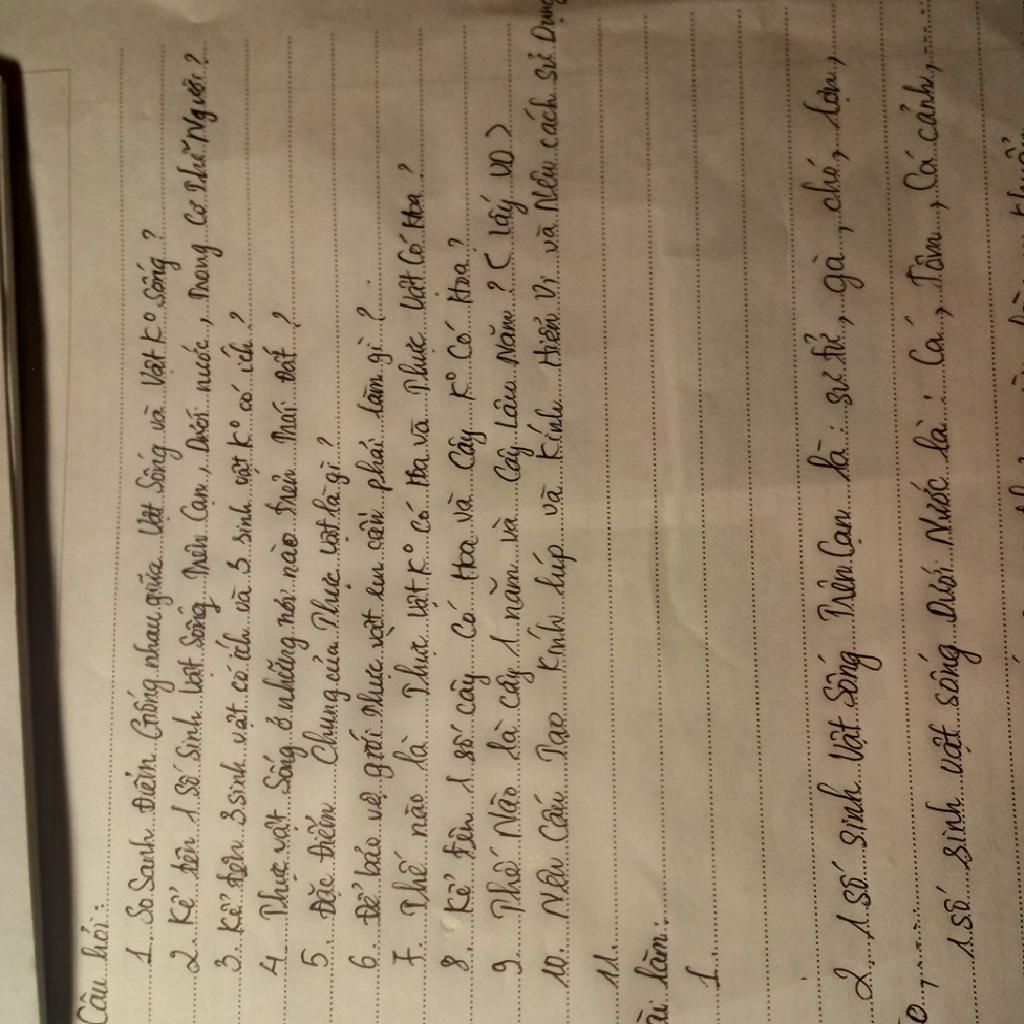 Câu hỏi:
1. So Sanh Điểm Giống nhau giữa Vật Sống và Vật K° Sống?
2. Kể tên 1 Số Sinh Vật Sống Trên Cạn, Dưới nước, Trong Cơ Thể Người?
3. Kể tên 3 sinh vật có ích và 3 sinh vật K° có ích?
4. Thực vật Sống ở những nơi nào trên Trái Đất?
5. Đặc Điểm Chung của Thực vật là gì?
6. Để bảo vệ giới Thực vật em cần phải làm gì?
7. Thế nào là Thực Vật K° Có Hoa và Thực Vật Có Hoa?
8. Kể tên 1 số cây Có Hoa và Cây K° Có Hoa?
9. Thế Nào là cây 1 năm và Cây Lâu Năm? ( lấy VD)
10. Nêu Cấu Tạo Kính lúp và Kính Hiển Vi và Nêu cách Sử Dụng
11.
ài làm:
1
2 1 Số Sinh Vật Sống Trên Cạn là: sư tử, gà, chó, lợn,
1 Số sinh vật sống Dưới Nước là: Cá, Tôm, Cá cảnh,